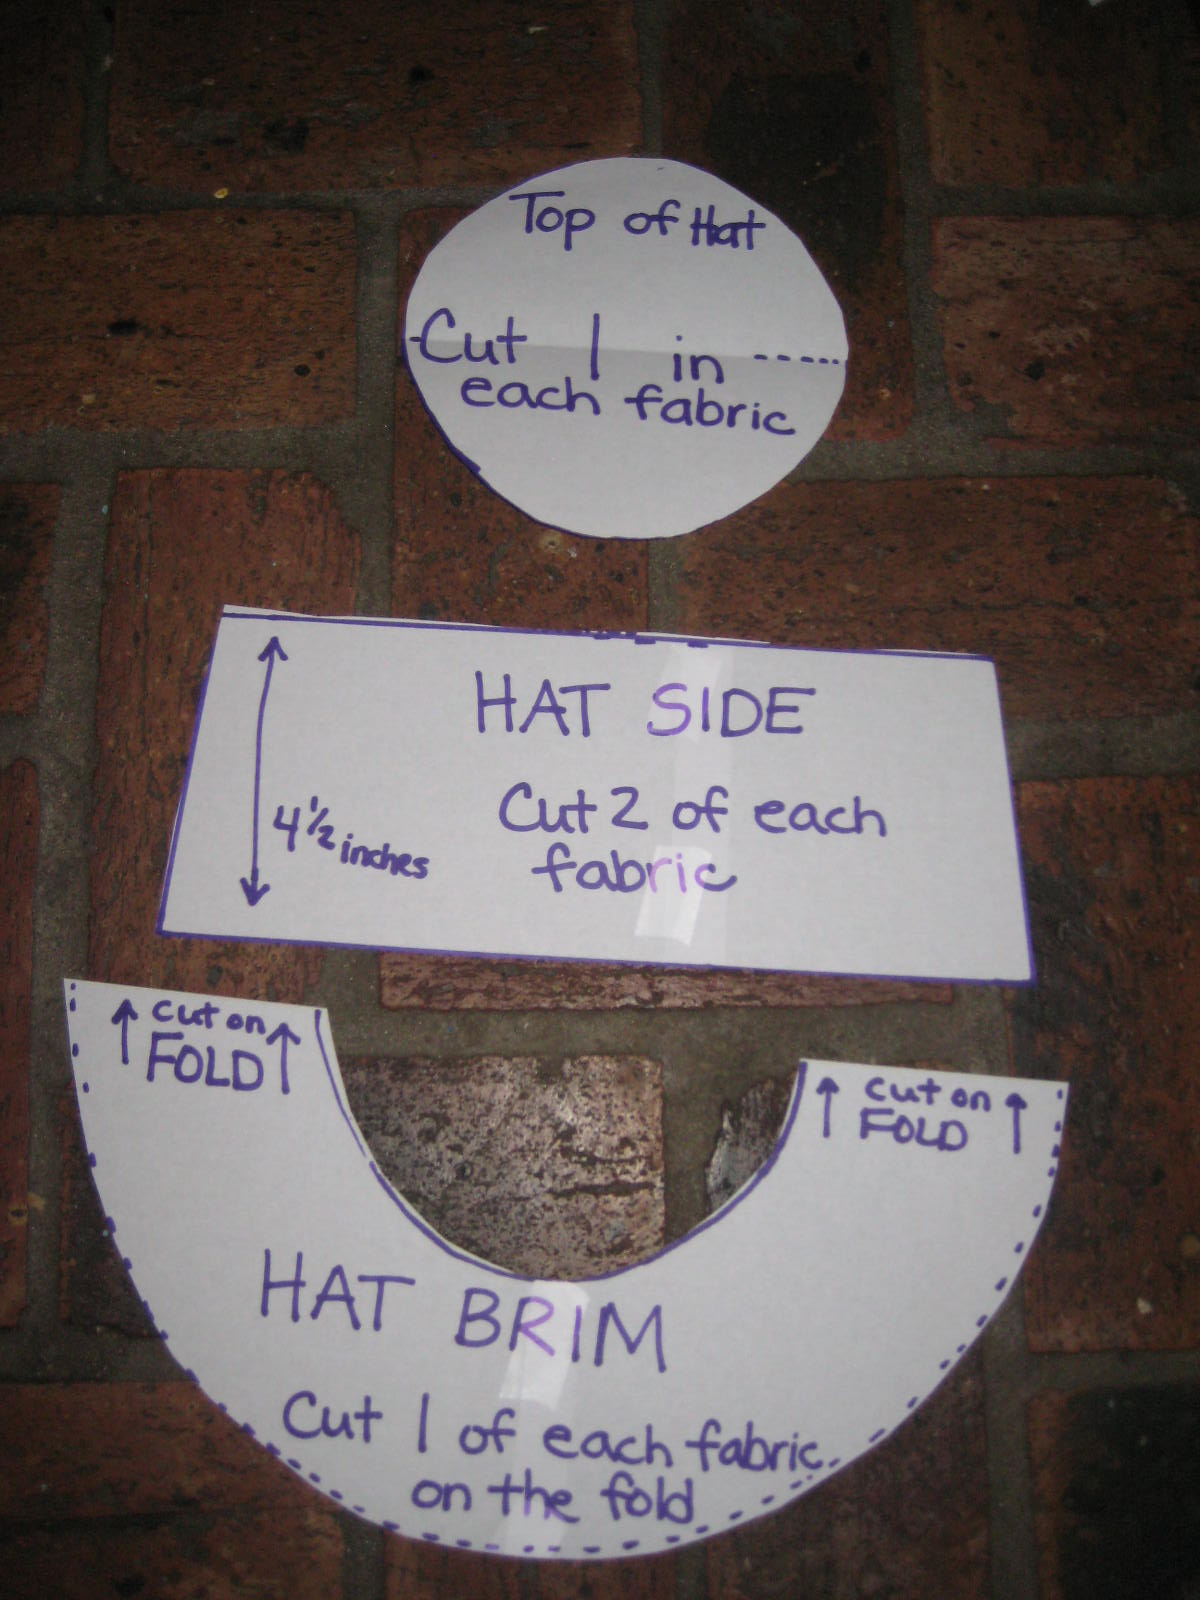 Top of Hat
Cut 1 in
each fabric
HAT SIDE
4 1/2 inches
Cut 2 of each
fabric
cut on
FOLD
cut on
FOLD
HAT BRIM
Cut 1 of each fabric
on the fold